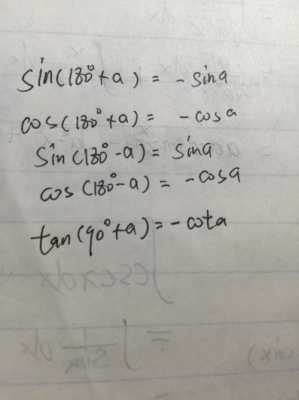 sin(180°+a) = -sina
cos(180°+a) = -cosa
sin(180°-a) = sina
cos(180°-a) = -cosa
tan(90°+a) = -cota